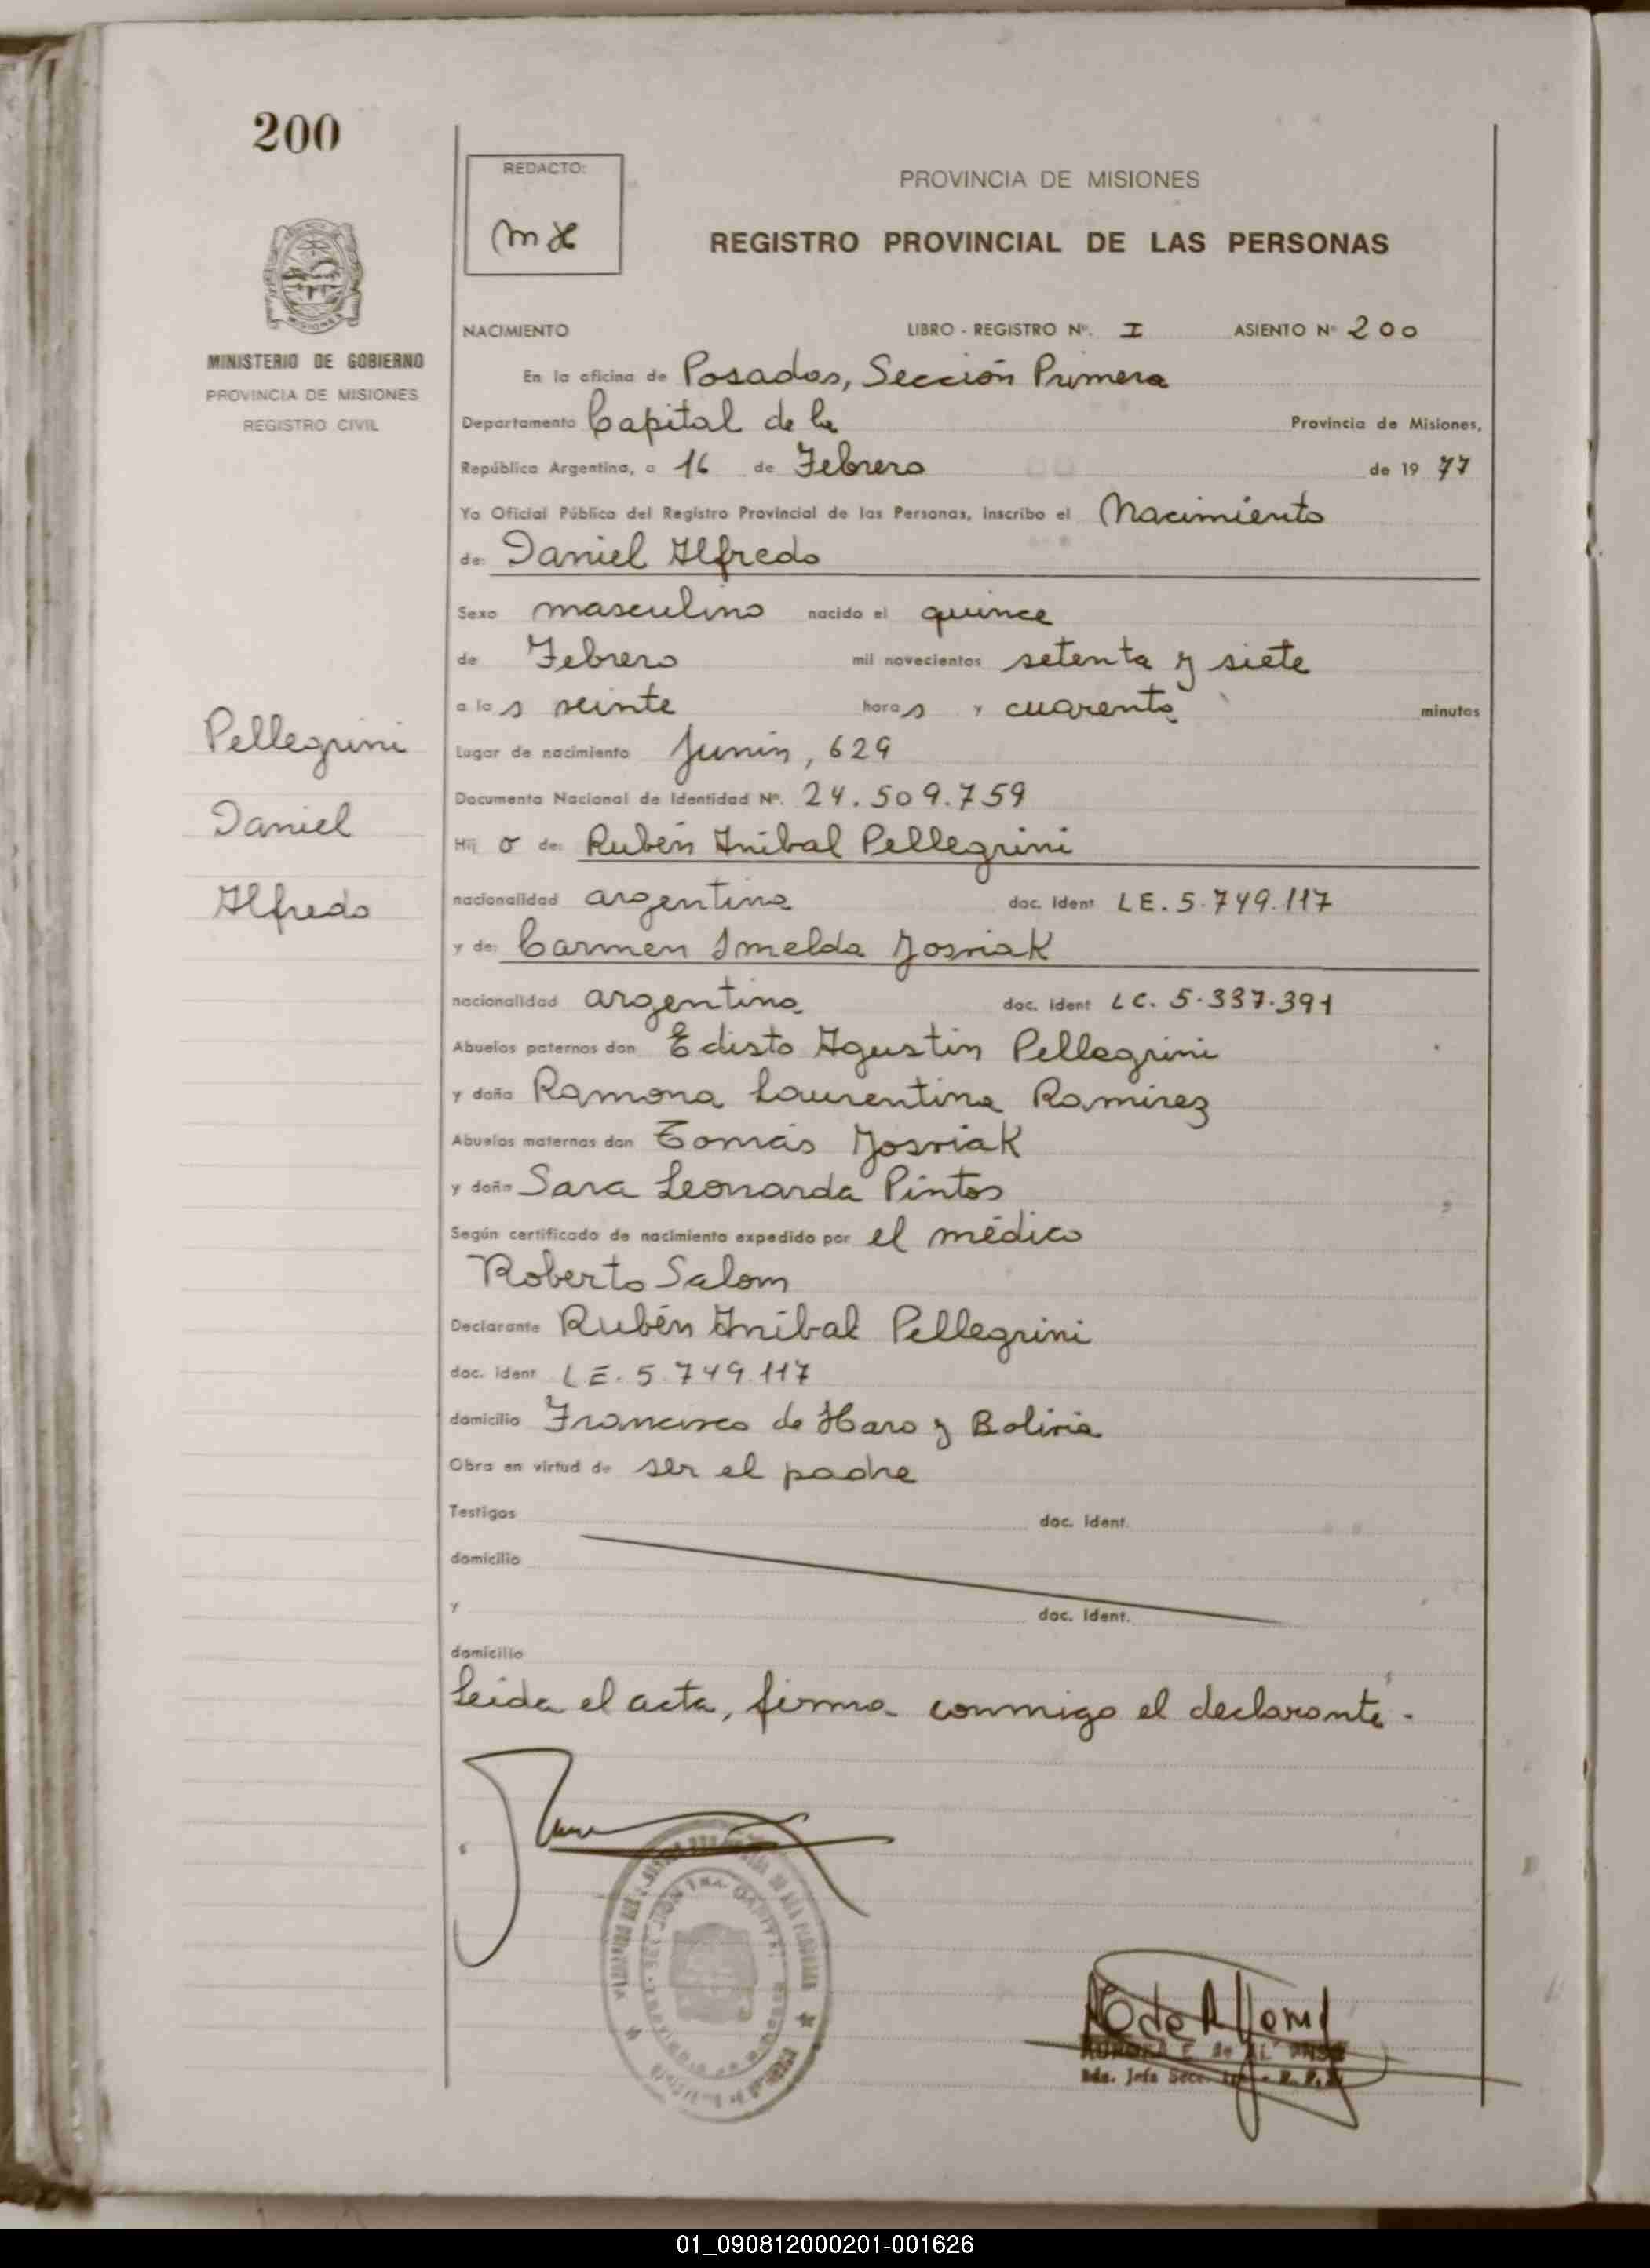 200
REDACTO:
PROVINCIA DE MISIONES
REGISTRO PROVINCIAL DE LAS PERSONAS
MISIONES
MINISTERIO DE GOBIERNO
PROVINCIA DE MISIONES
REGISTRO CIVIL
NACIMIENTO LIBRO - REGISTRO Nº. I ASIENTO Nº 200
En la oficina de Posadas, Sección Primera
Departamento Capital de la Provincia de Misiones,
República Argentina, a 16 de Febrero de 19 77
Yo Oficial Público del Registro Provincial de las Personas, inscribo el Nacimiento
de: Daniel Alfredo
Sexo masculino nacido el quince
de Febrero mil novecientos setenta y siete
a las veinte horas y cuarenta minutos
Lugar de nacimiento Junín, 629
Documento Nacional de Identidad Nº. 24.509.759
Hijo de: Rubén Aníbal Pellegrini
nacionalidad argentina doc. ident LE. 5.749.117
y de: Carmen Imelda Yosviak
nacionalidad argentina doc. ident LC. 5.337.391
Abuelos paternos don Edisto Agustín Pellegrini
y doña Ramona Laurentina Ramírez
Abuelos maternos don Tomás Yosviak
y doña Sara Leonarda Pintos
Según certificado de nacimiento expedido por el médico
Roberto Salom
Declarante Rubén Aníbal Pellegrini
doc. ident LE. 5.749.117
domicilio Francisco de Haro y Bolivia
Obra en virtud de ser el padre
Testigos doc. ident.
domicilio
y doc. ident.
domicilio
Leída el acta, firma conmigo el declarante.-
Pellegrini
Daniel
Alfredo
01_090812000201-001626